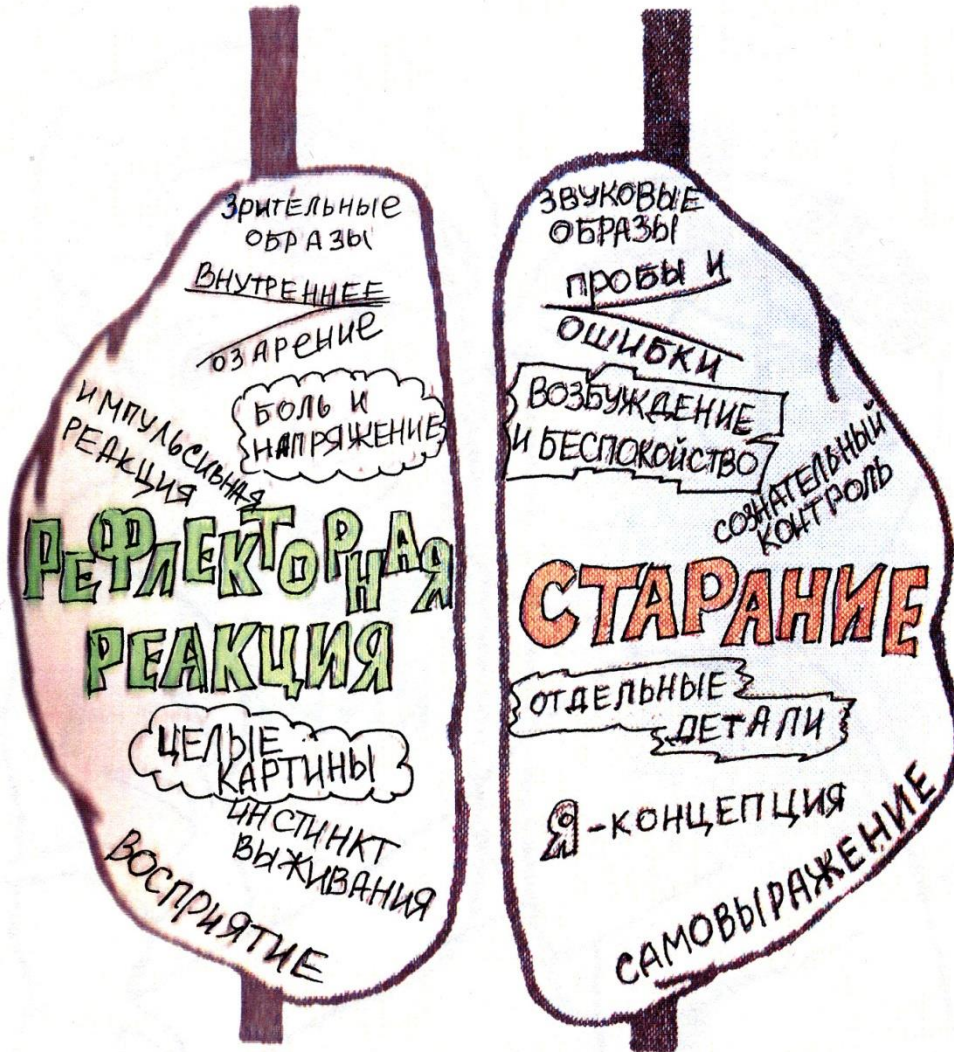 ЗРИТЕЛЬНЫЕ
ОБРАЗЫ
ВНУТРЕННЕЕ
ОЗАРЕНИЕ
БОЛЬ И
НАПРЯЖЕНИЕ
ИМПУЛЬСИВНАЯ
РЕАКЦИЯ
РЕФЛЕКТОРНАЯ
РЕАКЦИЯ
ЦЕЛЫЕ
КАРТИНЫ
ИНСТИНКТ
ВЫЖИВАНИЯ
ВОСПРИЯТИЕ
ЗВУКОВЫЕ
ОБРАЗЫ
ПРОБЫ И
ОШИБКИ
ВОЗБУЖДЕНИЕ
И БЕСПОКОЙСТВО
СОЗНАТЕЛЬНЫЙ
КОНТРОЛЬ
СТАРАНИЕ
ОТДЕЛЬНЫЕ
ДЕТАЛИ
Я-КОНЦЕПЦИЯ
САМОВЫРАЖЕНИЕ